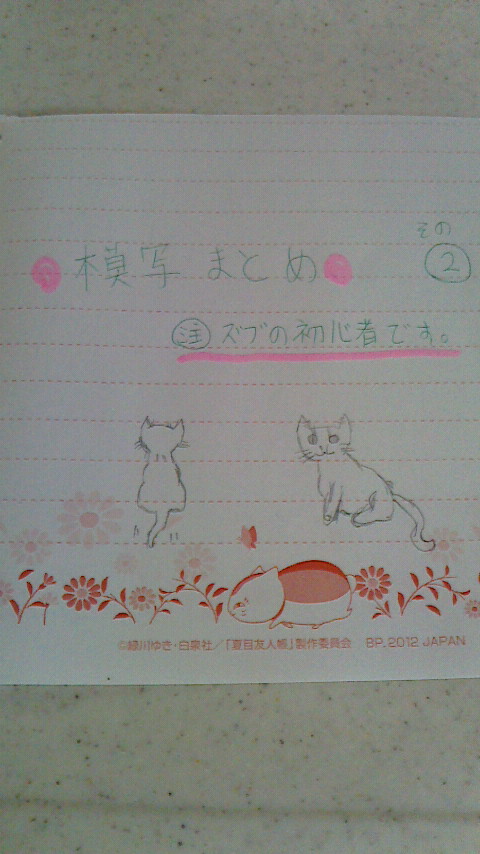 その
模写 まとめ ②
注 ズブの初心者です。
©緑川ゆき・白泉社／「夏目友人帳」製作委員会 BP, 2012 JAPAN